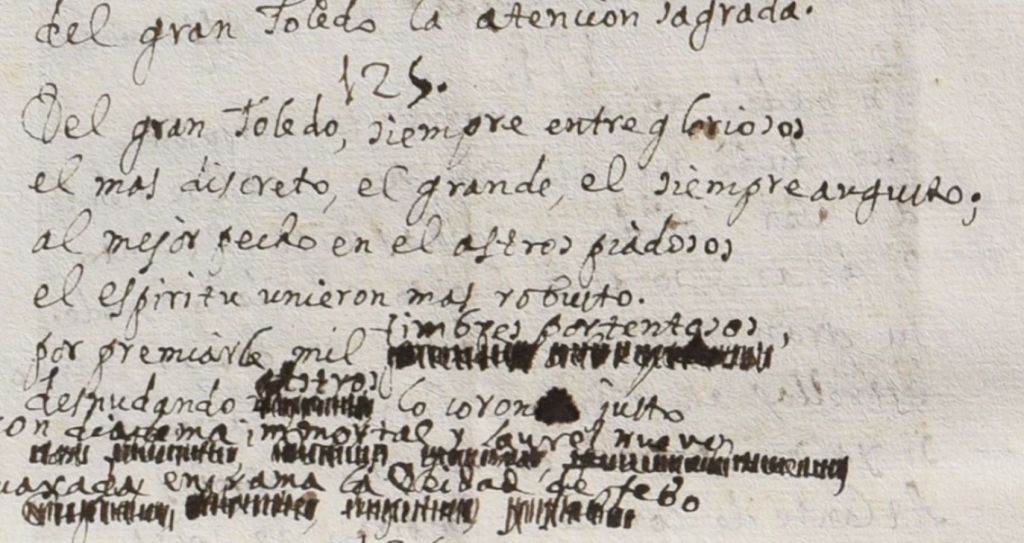 del gran Toledo la atencion sagrada.
125.
Del gran Toledo, siempre entre gloriosos
el mas discreto, el grande, el siempre augusto;
al mejor pecho en el astros piadosos
el espiritu unieron mas robusto.
timbres portentosos,
por premiarle mil
astros
despudando lo coron justo
on diadema immortal y laurel nuevo
en rama la Deidad de Febo